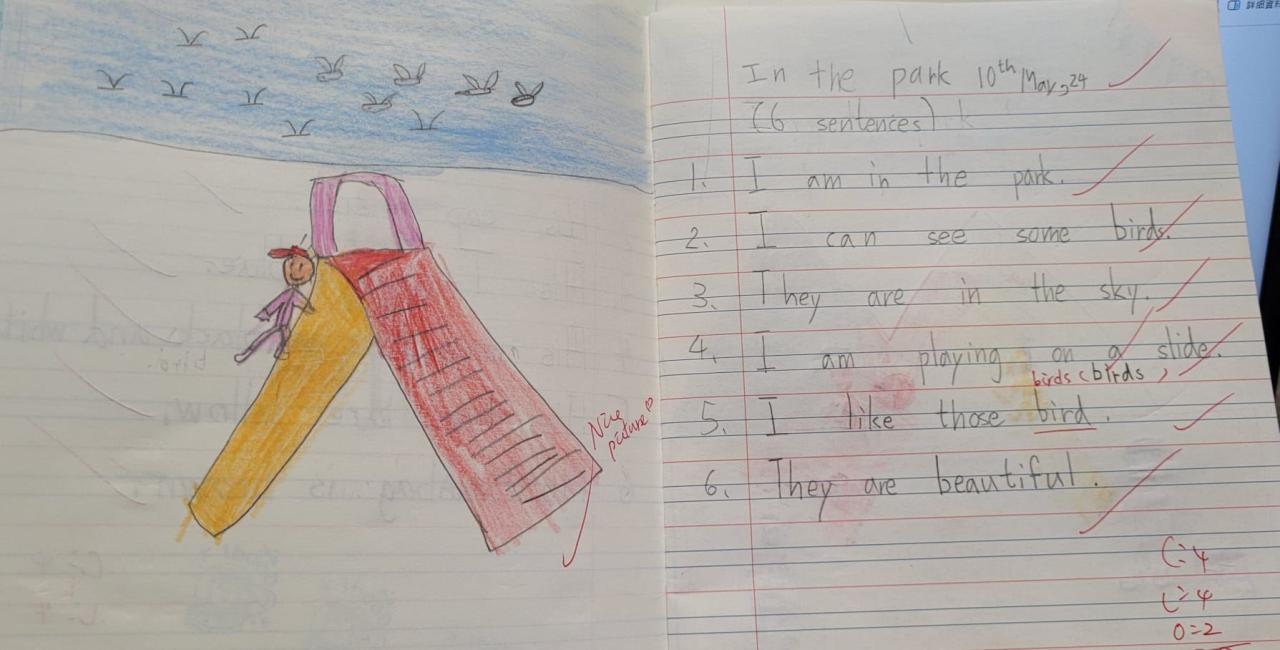 詳細資料
In the park 10th May, 24
(6 sentences)
1. I am in the park.
2. I can see some birds.
3. They are in the sky.
4. I am playing on a slide.
birds (birds)
5. I like those bird.
6. They are beautiful.
Nice picture
C=4
L=4
O=2